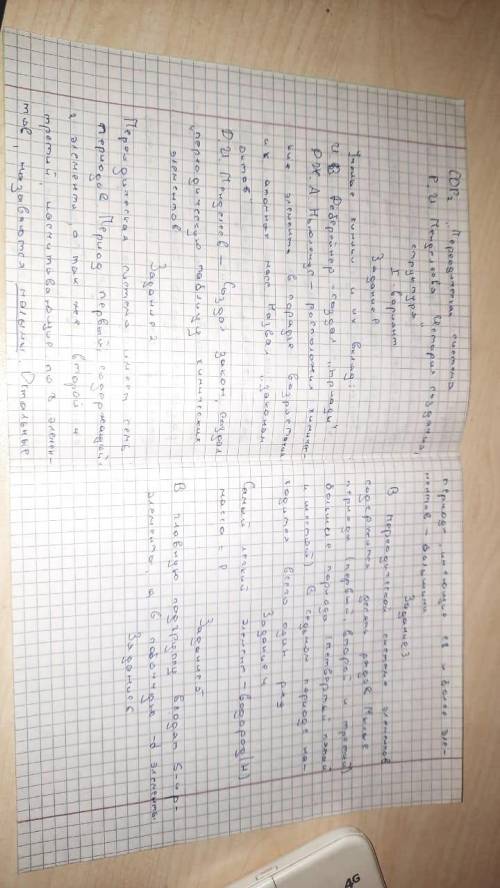 СОР: "Периодическая система
Д. И. Менделеева. История создания,
структура"
I вариант
Задание 1
Учёные химики и их вклад:
И. В. Деберейнер - создал "триады"
Дж. А. Ньюлендс - расположил химичес-
кие элементы в порядке возрастания
их атомных масс. Назвал "законом
октав"
Д. И. Менделеев - Создал закон, создал
периодическую таблицу химических
элементов
Задание 2
Периодическая система имеет семь
периодов. Период первый, содержащий
2 элемента, а так же второй и
третий, насчитывающие по 8 элемен-
тов, называются малыми. Остальные
периоды, имеющие 18 и более эле-
ментов - большими
Задание 3
В периодической системе элементов
содержится десять рядов. Малые
периоды (первый, второй и третий)
большие периоды (четвёртый, пятый
и шестой). В седьмом периоде на-
ходится всего один ряд
Задание 4
Самый лёгкий элемент - водород (H)
масса =
Задание 5
В главную подгруппу входят s- и p-
элементы, а в побочную - d элементы
Задание 6
4G